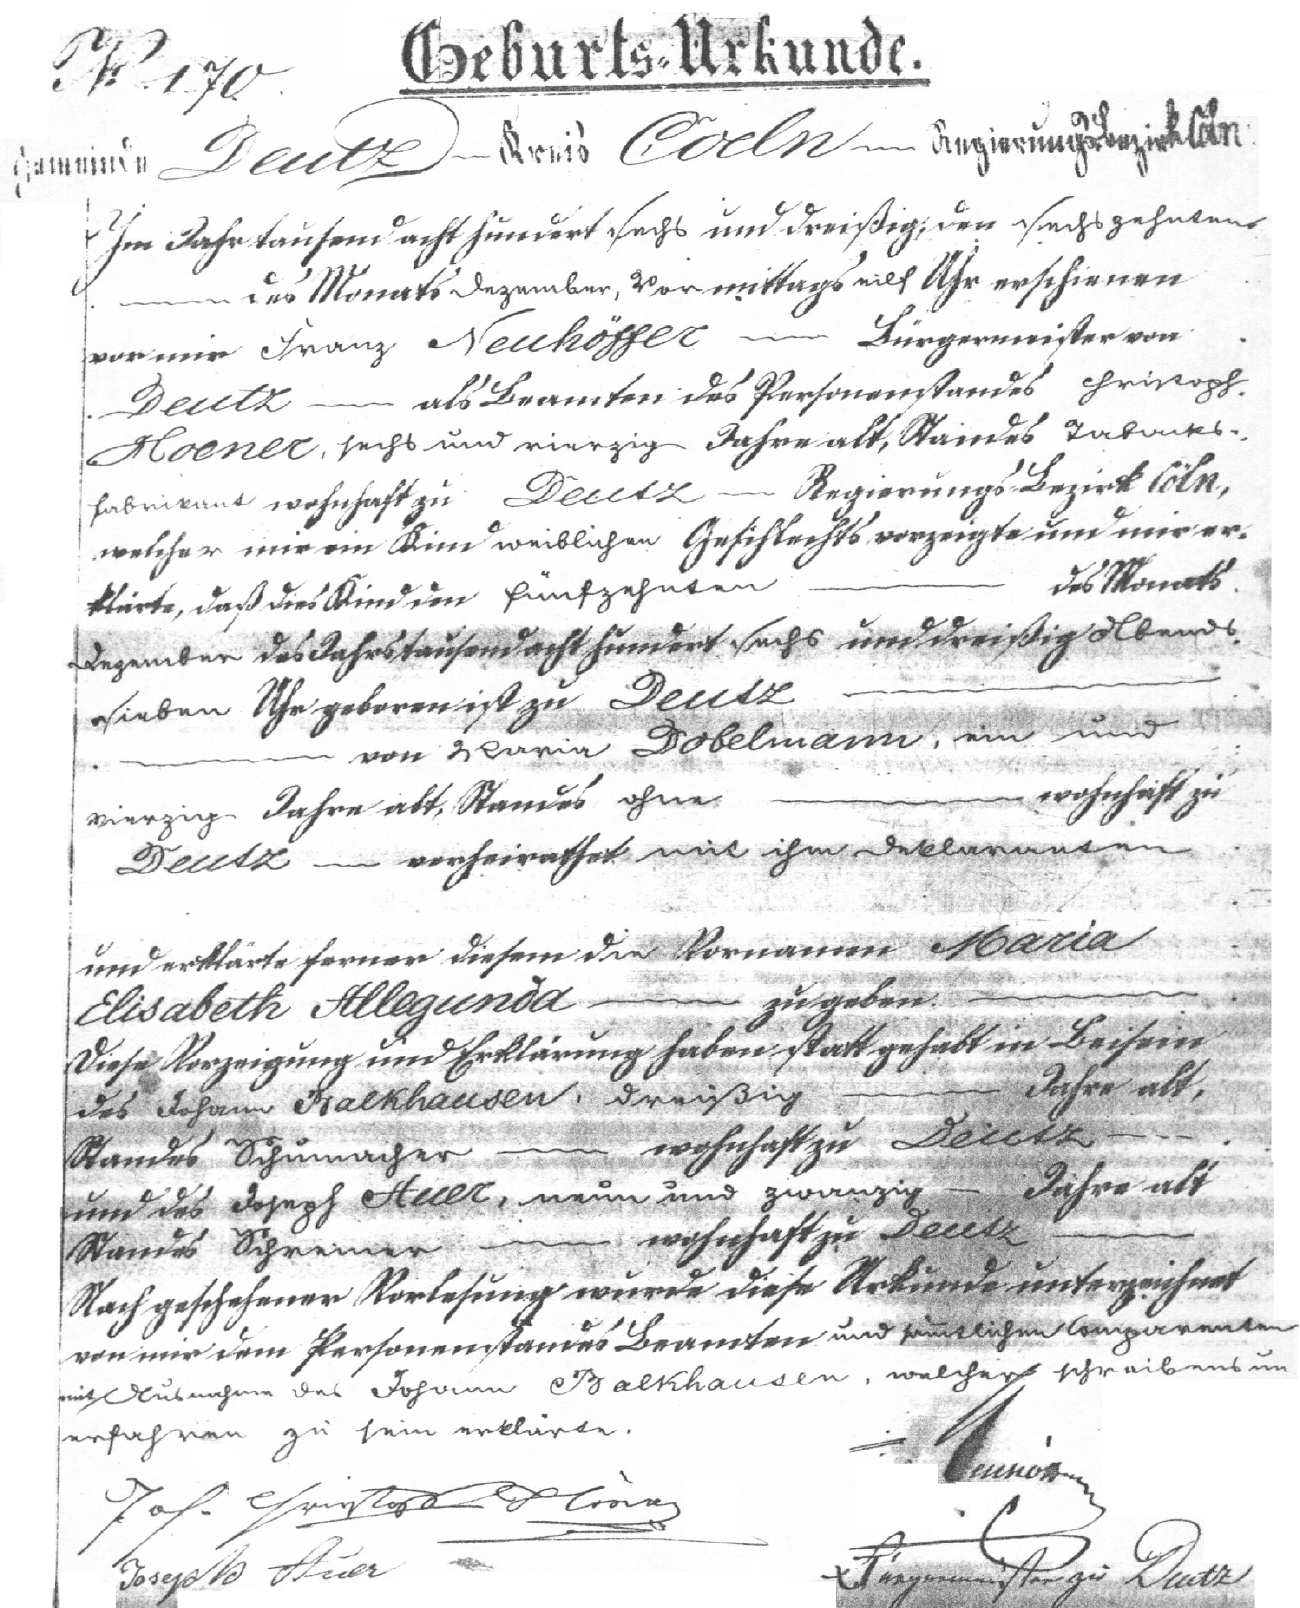 № 170.
Geburts-Urkunde.
Gemeinde Deutz Kreis Coeln Regierungsbezirk Cöln.
Im Jahr tausend acht hundert sechs und dreißig, den sechszehnten
des Monats Dezember, Vormittags eilf Uhr erschienen
vor mir Franz Neuhöffer Bürgermeister von
Deutz als Beamten des Personenstandes Christoph
Hoener, sechs und vierzig Jahre alt, Standes Tabacks-
fabrikant wohnhaft zu Deutz Regierungs-Bezirk Cöln,
welcher mir ein Kind weiblichen Geschlechts vorzeigte und mir er-
klärte, daß dies Kind den fünfzehnten des Monats
Dezember des Jahrs tausend acht hundert sechs und dreißig Abends
sieben Uhr geboren ist zu Deutz
von Maria Dobelmann, ein und
vierzig Jahre alt, Standes ohne wohnhaft zu
Deutz verheirathet mit ihm Deklaranten
und erklärte ferner diesem die Vornamen Maria
Elisabeth Allegunda zu geben.
Diese Vorzeigung und Erklärung haben statt gehabt in Beisein
des Johann Balkhausen, dreißig Jahre alt,
Standes Schumacher wohnhaft zu Deutz
und des Joseph Auer, neun und zwanzig Jahre alt
Standes Schreiner wohnhaft zu Deutz
Nach geschehener Vorlesung wurde diese Urkunde unterzeichnet
von mir dem Personenstandes Beamten und sämtlichen Comparenten
mit Ausnahme des Johann Balkhausen, welcher schreibens un
erfahren zu sein erklärte.
Jos. Christoph Höner
Joseph Auer
Bürgermeister zu Deutz